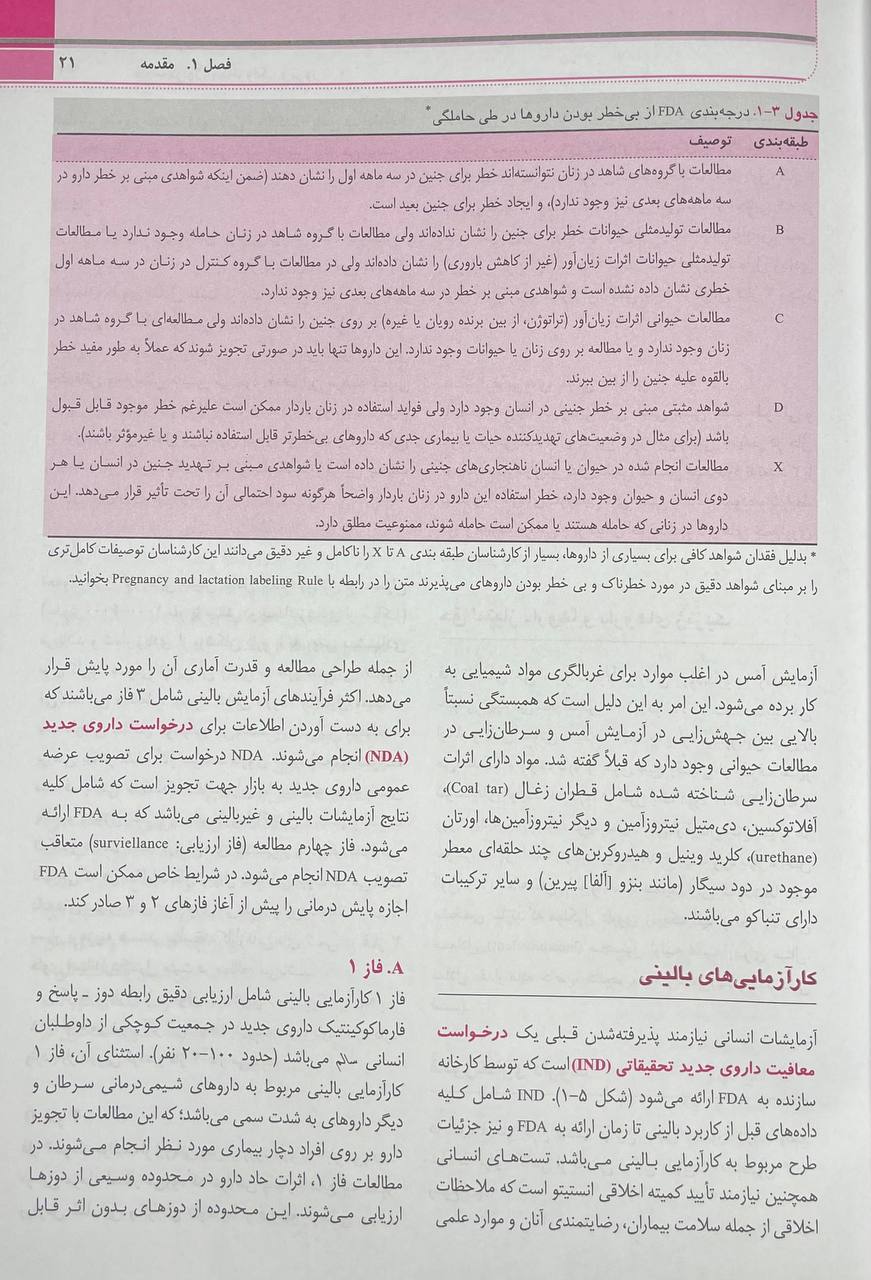 فصل ۱. مقدمه ۲۱
جدول ۳-۱. درجه‌بندی FDA از بی‌خطر بودن داروها در طی حاملگی*
طبقه‌بندی توصیف
A مطالعات با گروه‌های شاهد در زنان نتوانسته‌اند خطر برای جنین در سه ماهه اول را نشان دهند (ضمن اینکه شواهدی مبنی بر خطر دارو در
سه ماهه‌های بعدی نیز وجود ندارد)، و ایجاد خطر برای جنین بعید است.
B مطالعات تولیدمثلی حیوانات خطر برای جنین را نشان نداده‌اند ولی مطالعات با گروه شاهد در زنان حامله وجود ندارد یا مطالعات
تولیدمثلی حیوانات اثرات زیان‌آور (غیر از کاهش باروری) را نشان داده‌اند ولی در مطالعات با گروه کنترل در زنان در سه ماهه اول
خطری نشان داده نشده است و شواهدی مبنی بر خطر در سه ماهه‌های بعدی نیز وجود ندارد.
C مطالعات حیوانی اثرات زیان‌آور (تراتوژن، از بین برنده رویان یا غیره) بر روی جنین را نشان داده‌اند ولی مطالعه‌ای با گروه شاهد در
زنان وجود ندارد و یا مطالعه بر روی زنان یا حیوانات وجود ندارد. این داروها تنها باید در صورتی تجویز شوند که عملاً به طور مفید خطر
بالقوه علیه جنین را از بین ببرند.
D شواهد مثبتی مبنی بر خطر جنینی در انسان وجود دارد ولی فواید استفاده در زنان باردار ممکن است علیرغم خطر موجود قابل قبول
باشد (برای مثال در وضعیت‌های تهدیدکننده حیات یا بیماری جدی که داروهای بی‌خطرتر قابل استفاده نباشند و یا غیرمؤثر باشند).
X مطالعات انجام شده در حیوان یا انسان ناهنجاری‌های جنینی را نشان داده است یا شواهدی مبنی بر تهدید جنین در انسان یا هر
دوی انسان و حیوان وجود دارد، خطر استفاده این دارو در زنان باردار واضحاً هرگونه سود احتمالی آن را تحت تأثیر قرار می‌دهد. این
داروها در زنانی که حامله هستند یا ممکن است حامله شوند، ممنوعیت مطلق دارد.
* بدلیل فقدان شواهد کافی برای بسیاری از داروها، بسیار از کارشناسان طبقه بندی A تا X را ناکامل و غیر دقیق می‌دانند این کارشناسان توصیفات کامل‌تری
را بر مبنای شواهد دقیق در مورد خطرناک و بی خطر بودن داروهای می‌پذیرند متن را در رابطه با Pregnancy and lactation labeling Rule بخوانید.
آزمایش آمس در اغلب موارد برای غربالگری مواد شیمیایی به
کار برده می‌شود. این امر به این دلیل است که همبستگی نسبتاً
بالایی بین جهش‌زایی در آزمایش آمس و سرطان‌زایی در
مطالعات حیوانی وجود دارد که قبلاً گفته شد. مواد دارای اثرات
سرطان‌زایی شناخته شده شامل قطران زغال (Coal tar)،
آفلاتوکسین، دی‌متیل نیتروزآمین و دیگر نیتروزآمین‌ها، اورتان
(urethane)، کلرید وینیل و هیدروکربن‌های چند حلقه‌ای معطر
موجود در دود سیگار (مانند بنزو [آلفا] پیرین) و سایر ترکیبات
دارای تنباکو می‌باشند.
کارآزمایی‌های بالینی
آزمایشات انسانی نیازمند پذیرفته‌شدن قبلی یک درخواست
معافیت داروی جدید تحقیقاتی (IND) است که توسط کارخانه
سازنده به FDA ارائه می‌شود (شکل ۵-۱). IND شامل کلیه
داده‌های قبل از کاربرد بالینی تا زمان ارائه به FDA و نیز جزئیات
طرح مربوط به کارآزمایی بالینی می‌باشد. تست‌های انسانی
همچنین نیازمند تأیید کمیته اخلاقی انستیتو است که ملاحظات
اخلاقی از جمله سلامت بیماران، رضایتمندی آنان و موارد علمی
از جمله طراحی مطالعه و قدرت آماری آن را مورد پایش قرار
می‌دهد. اکثر فرآیندهای آزمایش بالینی شامل ۳ فاز می‌باشند که
برای به دست آوردن اطلاعات برای درخواست داروی جدید
(NDA) انجام می‌شوند. NDA درخواست برای تصویب عرضه
عمومی داروی جدید به بازار جهت تجویز است که شامل کلیه
نتایج آزمایشات بالینی و غیربالینی می‌باشد که به FDA ارائه
می‌شود. فاز چهارم مطالعه (فاز ارزیابی: surviellance) متعاقب
تصویب NDA انجام می‌شود. در شرایط خاص ممکن است FDA
اجازه پایش درمانی را پیش از آغاز فازهای ۲ و ۳ صادر کند.
A. فاز ۱
فاز ۱ کارآزمایی بالینی شامل ارزیابی دقیق رابطه دوز ـ پاسخ و
فارماکوکینتیک داروی جدید در جمعیت کوچکی از داوطلبان
انسانی سالم می‌باشد (حدود ۱۰۰-۲۰ نفر). استثنای آن، فاز ۱
کارآزمایی بالینی مربوط به داروهای شیمی‌درمانی سرطان و
دیگر داروهای به شدت سمی می‌باشد؛ که این مطالعات با تجویز
دارو بر روی افراد دچار بیماری مورد نظر انجام می‌شوند. در
مطالعات فاز ۱، اثرات حاد دارو در محدوده وسیعی از دوزها
ارزیابی می‌شوند. این محدوده از دوزهای بدون اثر قابل